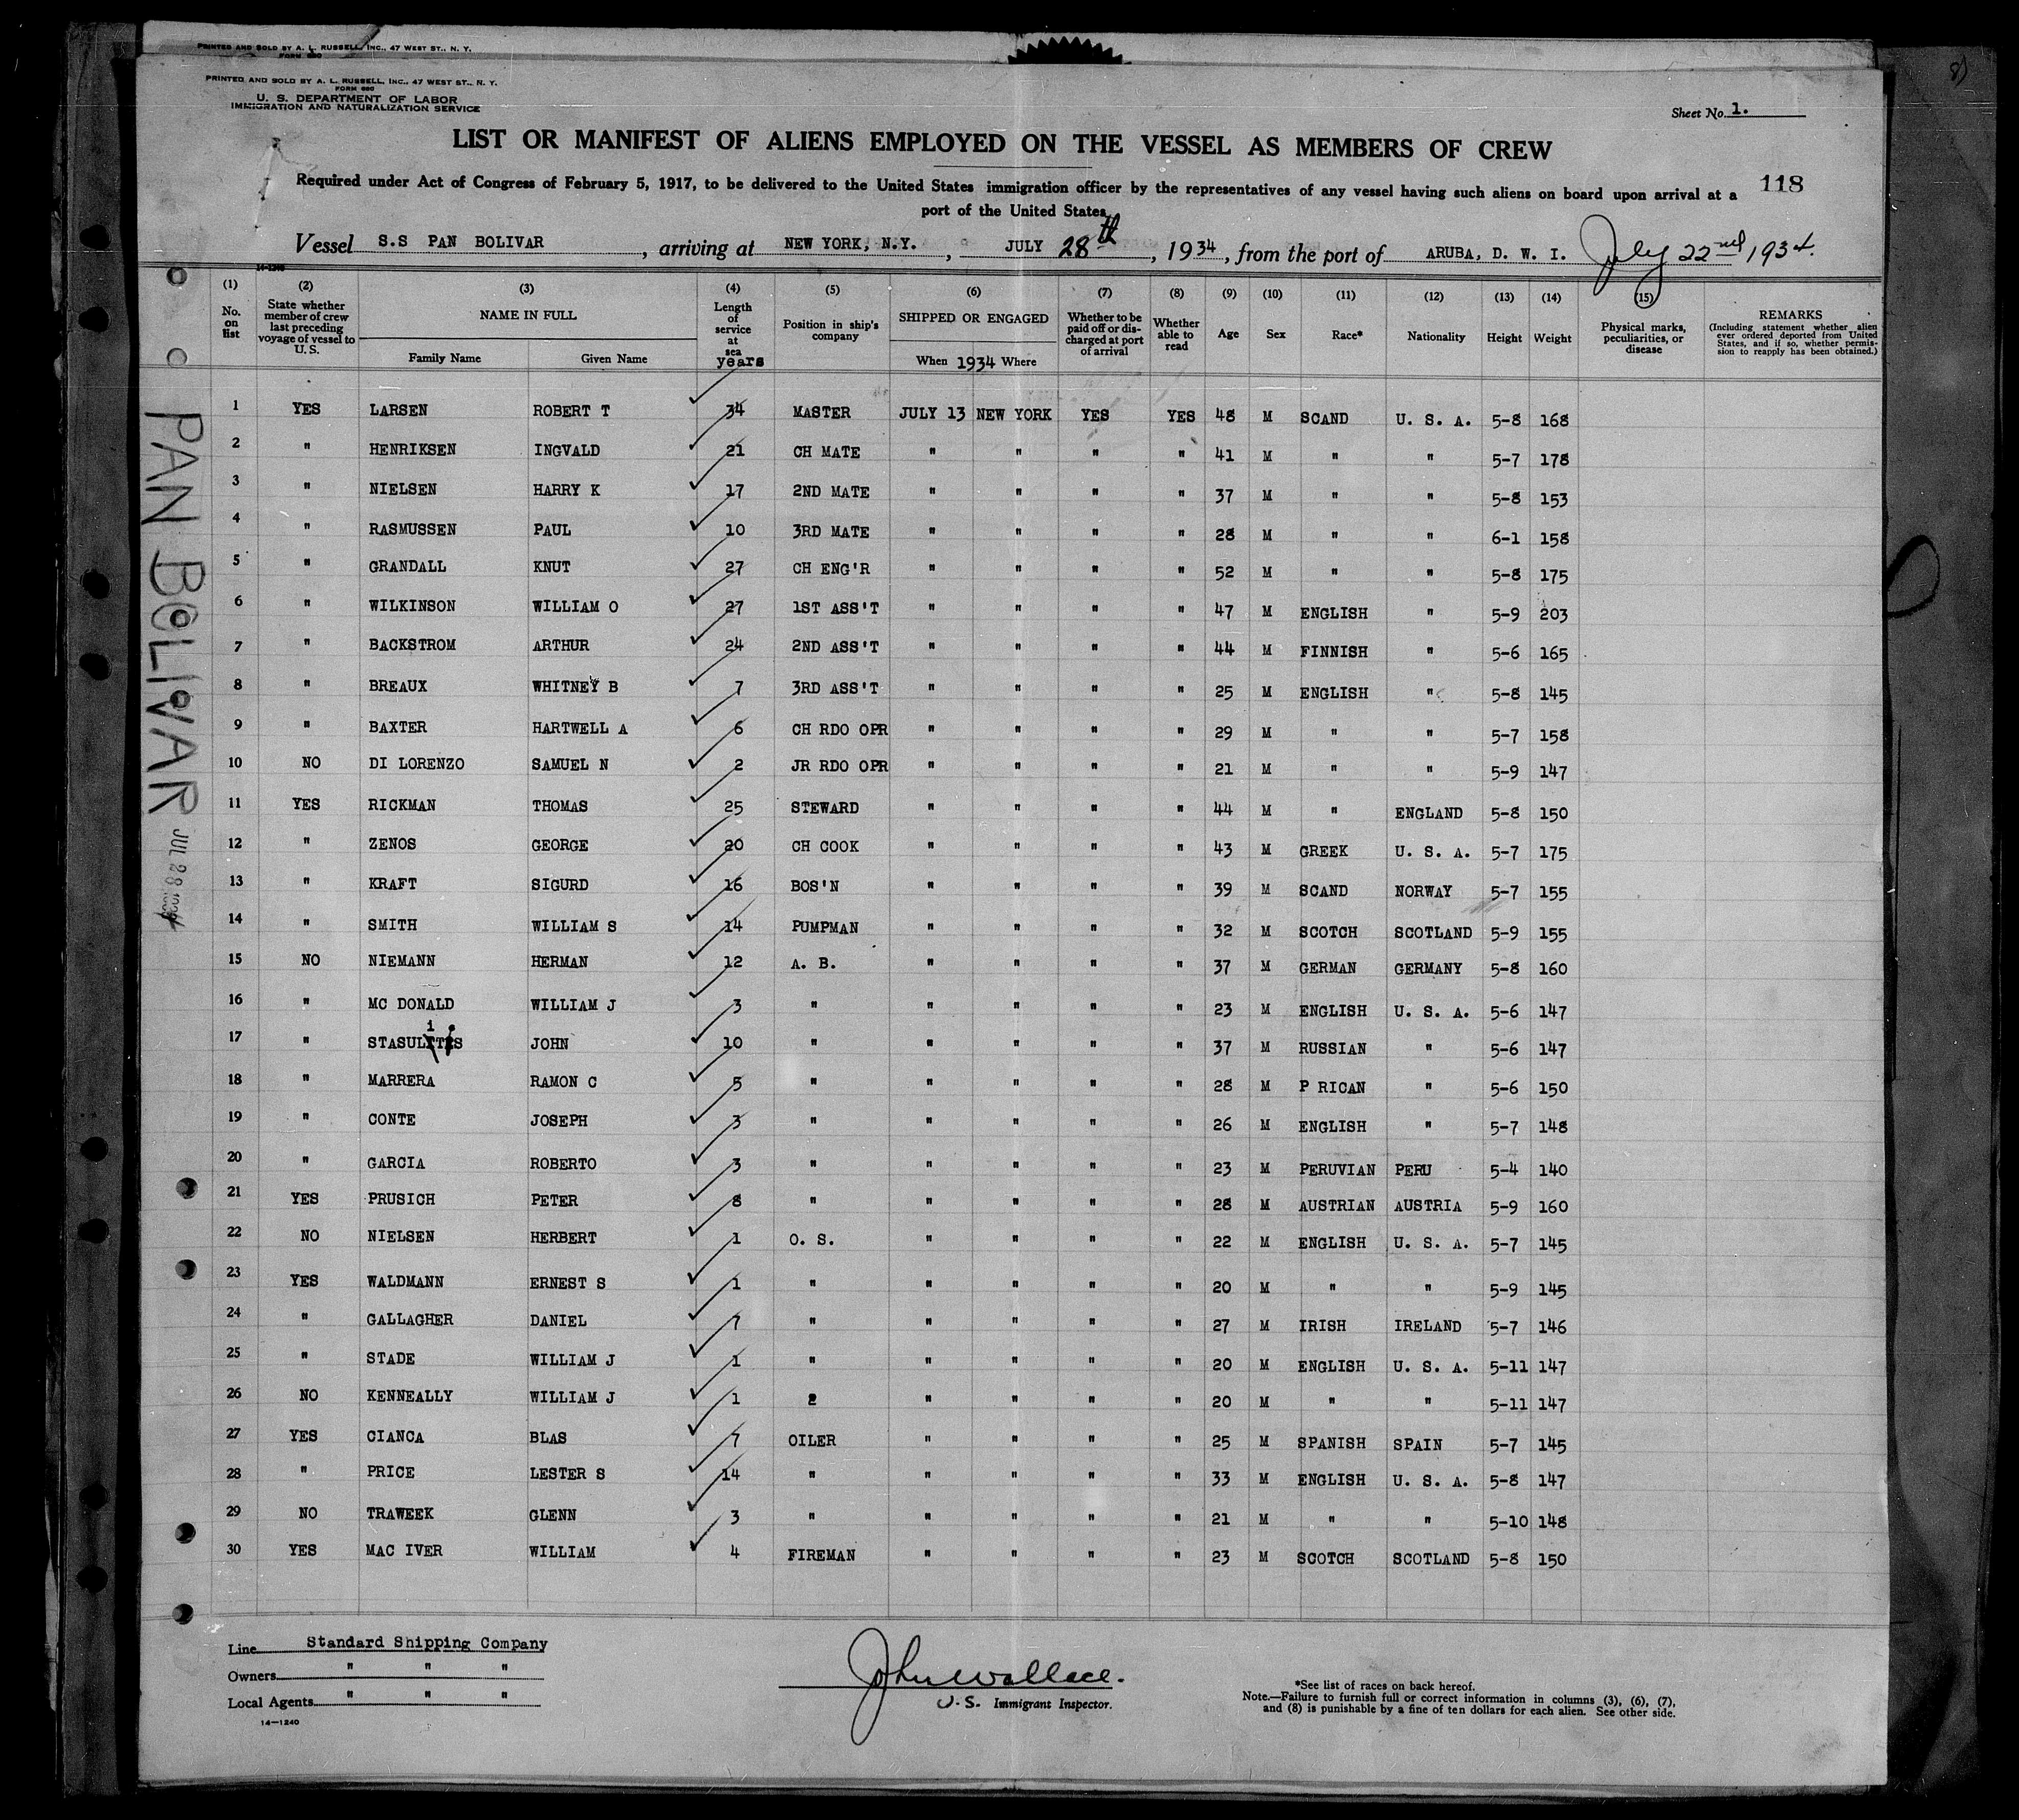 PRINTED AND SOLD BY A. L. RUSSELL, INC., 47 WEST ST., N. Y.
FORM 680
PRINTED AND SOLD BY A. L. RUSSELL, INC., 47 WEST ST., N. Y.
FORM 680
U. S. DEPARTMENT OF LABOR
IMMIGRATION AND NATURALIZATION SERVICE
Sheet No. 1.
LIST OR MANIFEST OF ALIENS EMPLOYED ON THE VESSEL AS MEMBERS OF CREW
118
Required under Act of Congress of February 5, 1917, to be delivered to the United States immigration officer by the representatives of any vessel having such aliens on board upon arrival at a
port of the United States
Vessel S.S PAN BOLIVAR, arriving at NEW YORK, N.Y., JULY 28th, 1934, from the port of ARUBA, D. W. I. July 22nd 1934.
14-1240
(1) (2) (3) (4) (5) (6) (7) (8) (9) (10) (11) (12) (13) (14) (15)
No. on list | State whether member of crew last preceding voyage of vessel to U. S. | NAME IN FULL Family Name Given Name | Length of service at sea years | Position in ship's company | SHIPPED OR ENGAGED When 1934 Where | Whether to be paid off or discharged at port of arrival | Whether able to read | Age | Sex | Race* | Nationality | Height | Weight | Physical marks, peculiarities, or disease | REMARKS (Including statement whether alien ever ordered deported from United States, and if so, whether permission to reapply has been obtained.)
1 YES LARSEN ROBERT T 34 MASTER JULY 13 NEW YORK YES YES 48 M SCAND U. S. A. 5-8 168
2 " HENRIKSEN INGVALD 21 CH MATE " " " " 41 M " " 5-7 178
3 " NIELSEN HARRY K 17 2ND MATE " " " " 37 M " " 5-8 153
4 " RASMUSSEN PAUL 10 3RD MATE " " " " 28 M " " 6-1 158
5 " GRANDALL KNUT 27 CH ENG'R " " " " 52 M " " 5-8 175
6 " WILKINSON WILLIAM O 27 1ST ASS'T " " " " 47 M ENGLISH " 5-9 203
7 " BACKSTROM ARTHUR 24 2ND ASS'T " " " " 44 M FINNISH " 5-6 165
8 " BREAUX WHITNEY B 7 3RD ASS'T " " " " 25 M ENGLISH " 5-8 145
9 " BAXTER HARTWELL A 6 CH RDO OPR " " " " 29 M " " 5-7 158
10 NO DI LORENZO SAMUEL N 2 JR RDO OPR " " " " 21 M " " 5-9 147
11 YES RICKMAN THOMAS 25 STEWARD " " " " 44 M " ENGLAND 5-8 150
12 " ZENOS GEORGE 20 CH COOK " " " " 43 M GREEK U. S. A. 5-7 175
13 " KRAFT SIGURD 16 BOS'N " " " " 39 M SCAND NORWAY 5-7 155
14 " SMITH WILLIAM S 14 PUMPMAN " " " " 32 M SCOTCH SCOTLAND 5-9 155
15 NO NIEMANN HERMAN 12 A. B. " " " " 37 M GERMAN GERMANY 5-8 160
16 " MC DONALD WILLIAM J 3 " " " " " 23 M ENGLISH U. S. A. 5-6 147
17 " JOHN 10 " " " " " 37 M RUSSIAN " 5-6 147
18 " MARRERA RAMON C 5 " " " " " 28 M P RICAN " 5-6 150
19 " CONTE JOSEPH 3 " " " " " 26 M ENGLISH " 5-7 148
20 " GARCIA ROBERTO 3 " " " " " 23 M PERUVIAN PERU 5-4 140
21 YES PRUSICH PETER 8 " " " " " 28 M AUSTRIAN AUSTRIA 5-9 160
22 NO NIELSEN HERBERT 1 O. S. " " " " 22 M ENGLISH U. S. A. 5-7 145
23 YES WALDMANN ERNEST S 1 " " " " " 20 M " " 5-9 145
24 " GALLAGHER DANIEL 7 " " " " " 27 M IRISH IRELAND 5-7 146
25 " STADE WILLIAM J 1 " " " " " 20 M ENGLISH U. S. A. 5-11 147
26 NO KENNEALLY WILLIAM J 1 2 " " " " 20 M " " 5-11 147
27 YES CIANCA BLAS 7 OILER " " " " 25 M SPANISH SPAIN 5-7 145
28 " PRICE LESTER S 14 " " " " " 33 M ENGLISH U. S. A. 5-8 147
29 NO TRAWEEK GLENN 3 " " " " " 21 M " " 5-10 148
30 YES MAC IVER WILLIAM 4 FIREMAN " " " " 23 M SCOTCH SCOTLAND 5-8 150
PAN BOLIVAR
JUL 28
Line Standard Shipping Company
Owners " " "
Local Agents " " "
14-1240
John Wallace.
U.S. Immigrant Inspector.
*See list of races on back hereof.
Note.—Failure to furnish full or correct information in columns (3), (6), (7),
and (8) is punishable by a fine of ten dollars for each alien. See other side.